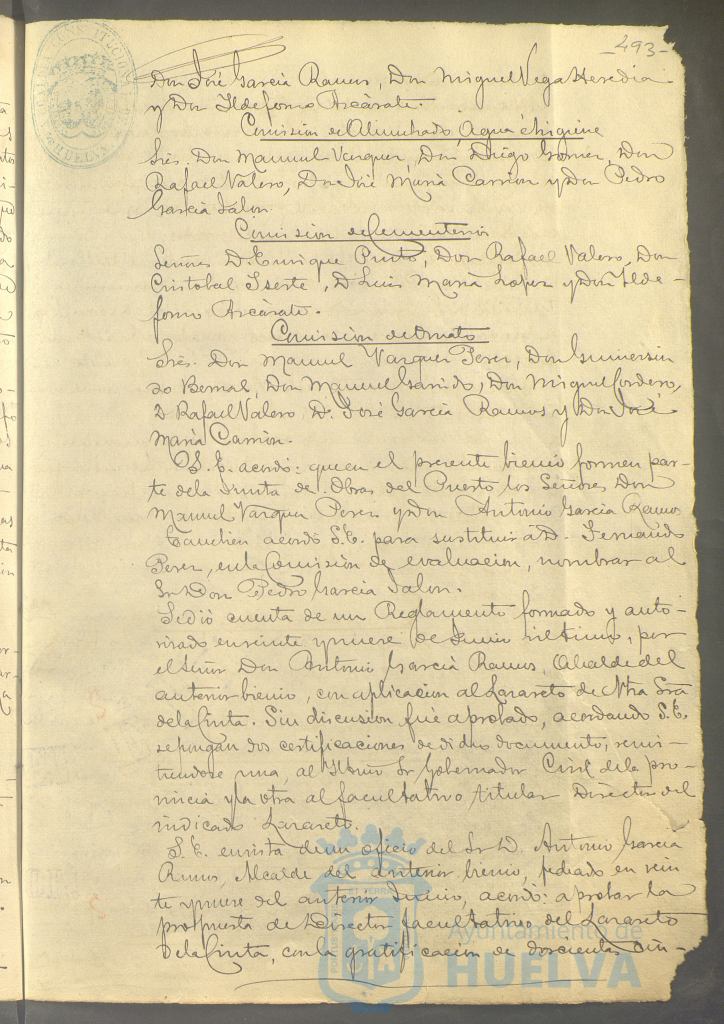 -493-
Don José Garcia Ramos, Don Miguel Vega Heredia
y Don Ildefonso Azcárate.
Comisión de Alumbrado Agua é higiene
Sres. Don Manuel Vazquez, Don Diego Gomez, Don
Rafael Valero, Don José Maria Carrion y Don Pedro
Garcia Jalon
Comision de Cementerios
Señores D. Enrique Pinto, Don Rafael Valero, Don
Cristobal Iserte, D Luis Maria Lopez y Don Ilde-
fonso Azcárate.
Comisión de Ornato
Sres. Don Manuel Vazquez Perez, Don Gumersin
do Bernal, Don Manuel Garrido, Don Miguel Cordero,
D Rafael Valero D. José Garcia Ramos y Don José
Maria Carrion.
S. E. acordó: que en el presente bienio formen par-
te de la Junta de Obras del Puerto los Señores Don
Manuel Vazquez Perez y Don Antonio Garcia Ramos
Tambien acordó S.E. para sustituir á D. Fernando
Perez, en la Comisión de evaluacion, nombrar al
Sr Don Pedro Garcia Jalon.
Se dió cuenta de un Reglamento formado y auto-
rizado en veinte y nueve de Junio último, por
el Señor Don Antonio Garcia Ramos, Alcalde del
anterior bienio, con aplicacion al Lazareto de Ntra Sra
de la Cinta. Sin discusion fué aprobado, acordando S.E.
se pongan dos certificaciones de dicho documento, remi-
tiendose una, al Iltmo Sr Gobernador Civil de la pro-
vincia y la otra al facultativo titular Director del
indicado Lazareto.
S. E. en vista de un oficio del Sr D. Antonio Garcia
Ramos, Alcalde del anterior bienio, fechado en vein
te y nueve del anterior Junio, acordó: aprobar la
propuesta de Director facultativo del Lazareto
de la Cinta, con la gratificacion de doscientas cin-
Ayuntamiento de
HUELVA